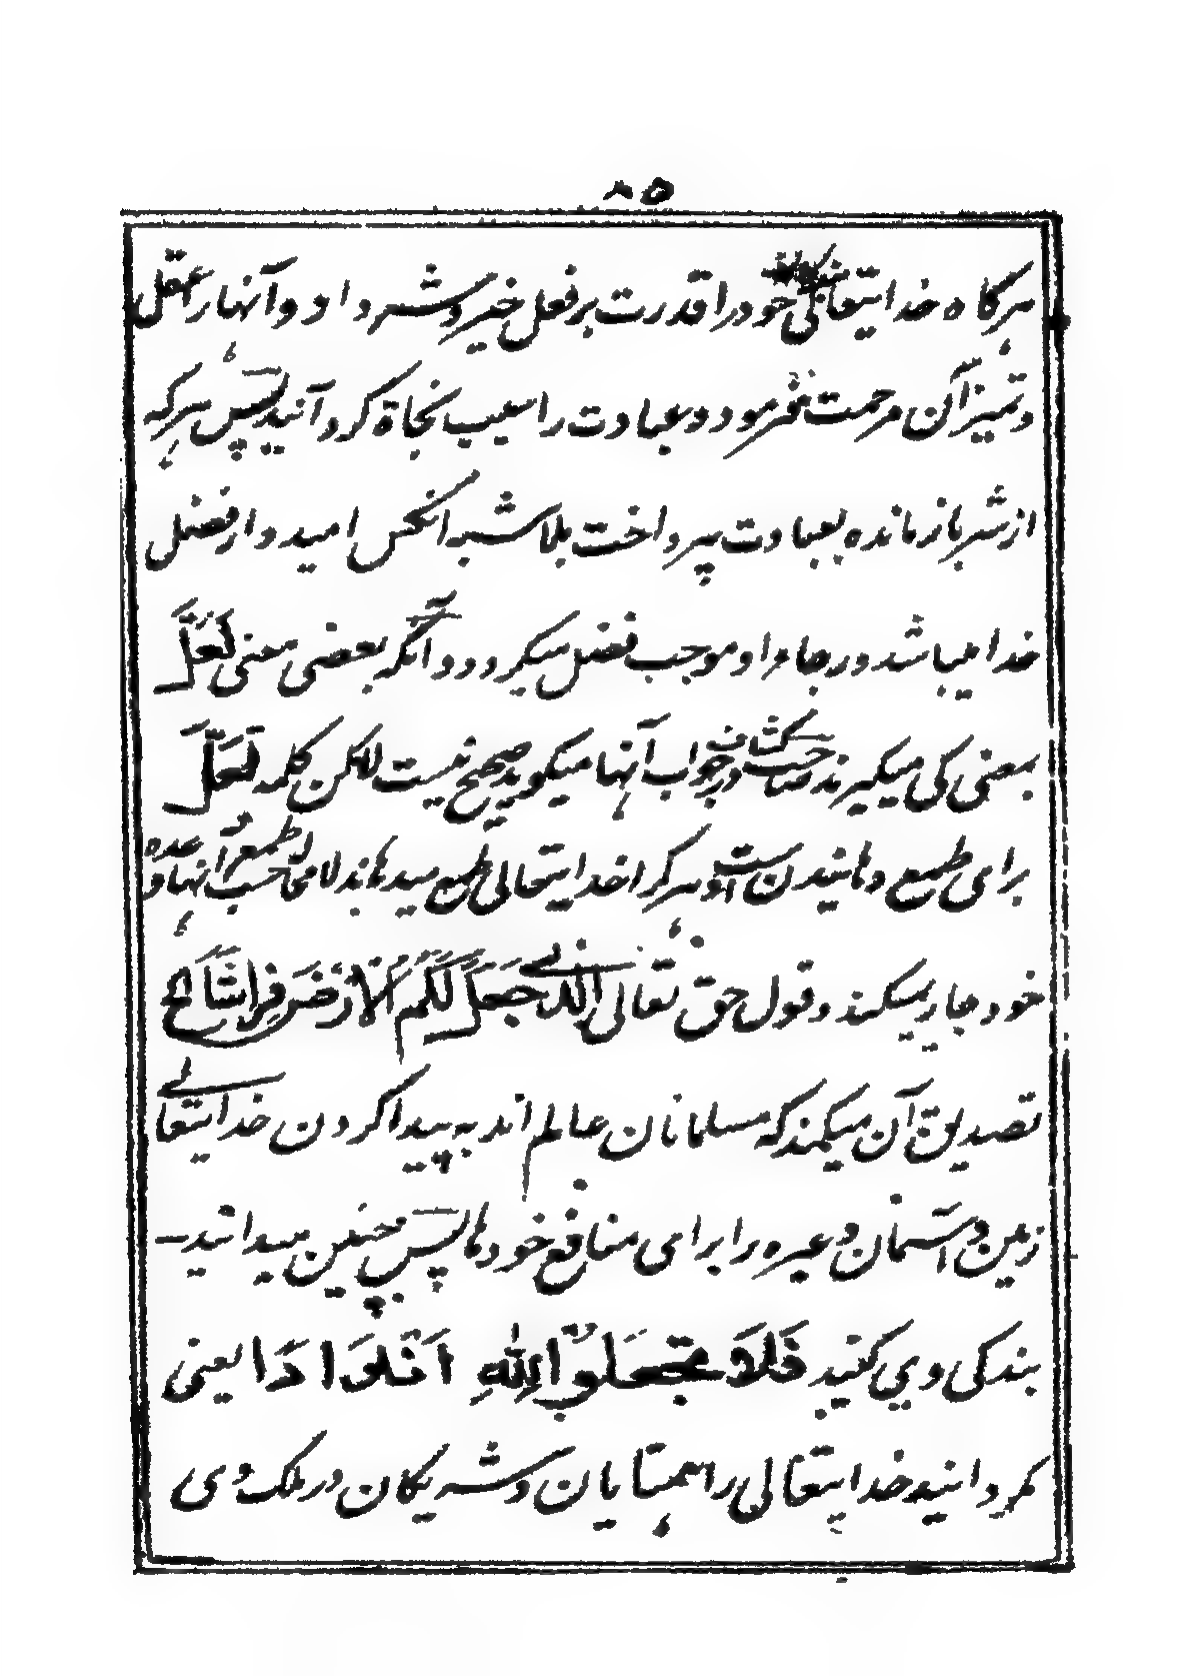 ۸۵
هرگاه خدایتعالی خود را قدرت بر فعل خیر و شر داد و آنها را عقل
و تمیز آن مرحمت فرمود و عبادت را سبب نجاة گردآنید پس هرکه
از شر باز مانده بعبادت پرداخت بلاشبه آنکس امیدوار فضل
خدا میباشد و رجاء او موجب فضل میگردد و آنکه بعضی معنی لَعَلَّ
بمعنی کی میگیرند صاحب کشاف در جواب آنها میگوید صحیح نیست لاکن کلمه لَعَلَّ
برای طمع دهانیدن است و هرگرا خدایتعالی طمع میدهاند لامحاله حسب طمع آنها وعده
خود جاری میکند و قول حق تعالی الَّذِی جَعَلَ لَکُمُ الْاَرْضَ فِرَاشًا الخ
تصدیق آن میکند که مسلمانان عالم اند به پیدا کردن خدایتعالی
زمین و آسمان و غیره را برای منافع خودها پس چنین میدانید
بندگی وی کنید فَلَا تَجْعَلُوْا لِلّٰهِ اَنْدَادًا یعنی
مگردانید خدایتعالی را همتایان و شریکان در ملک وی